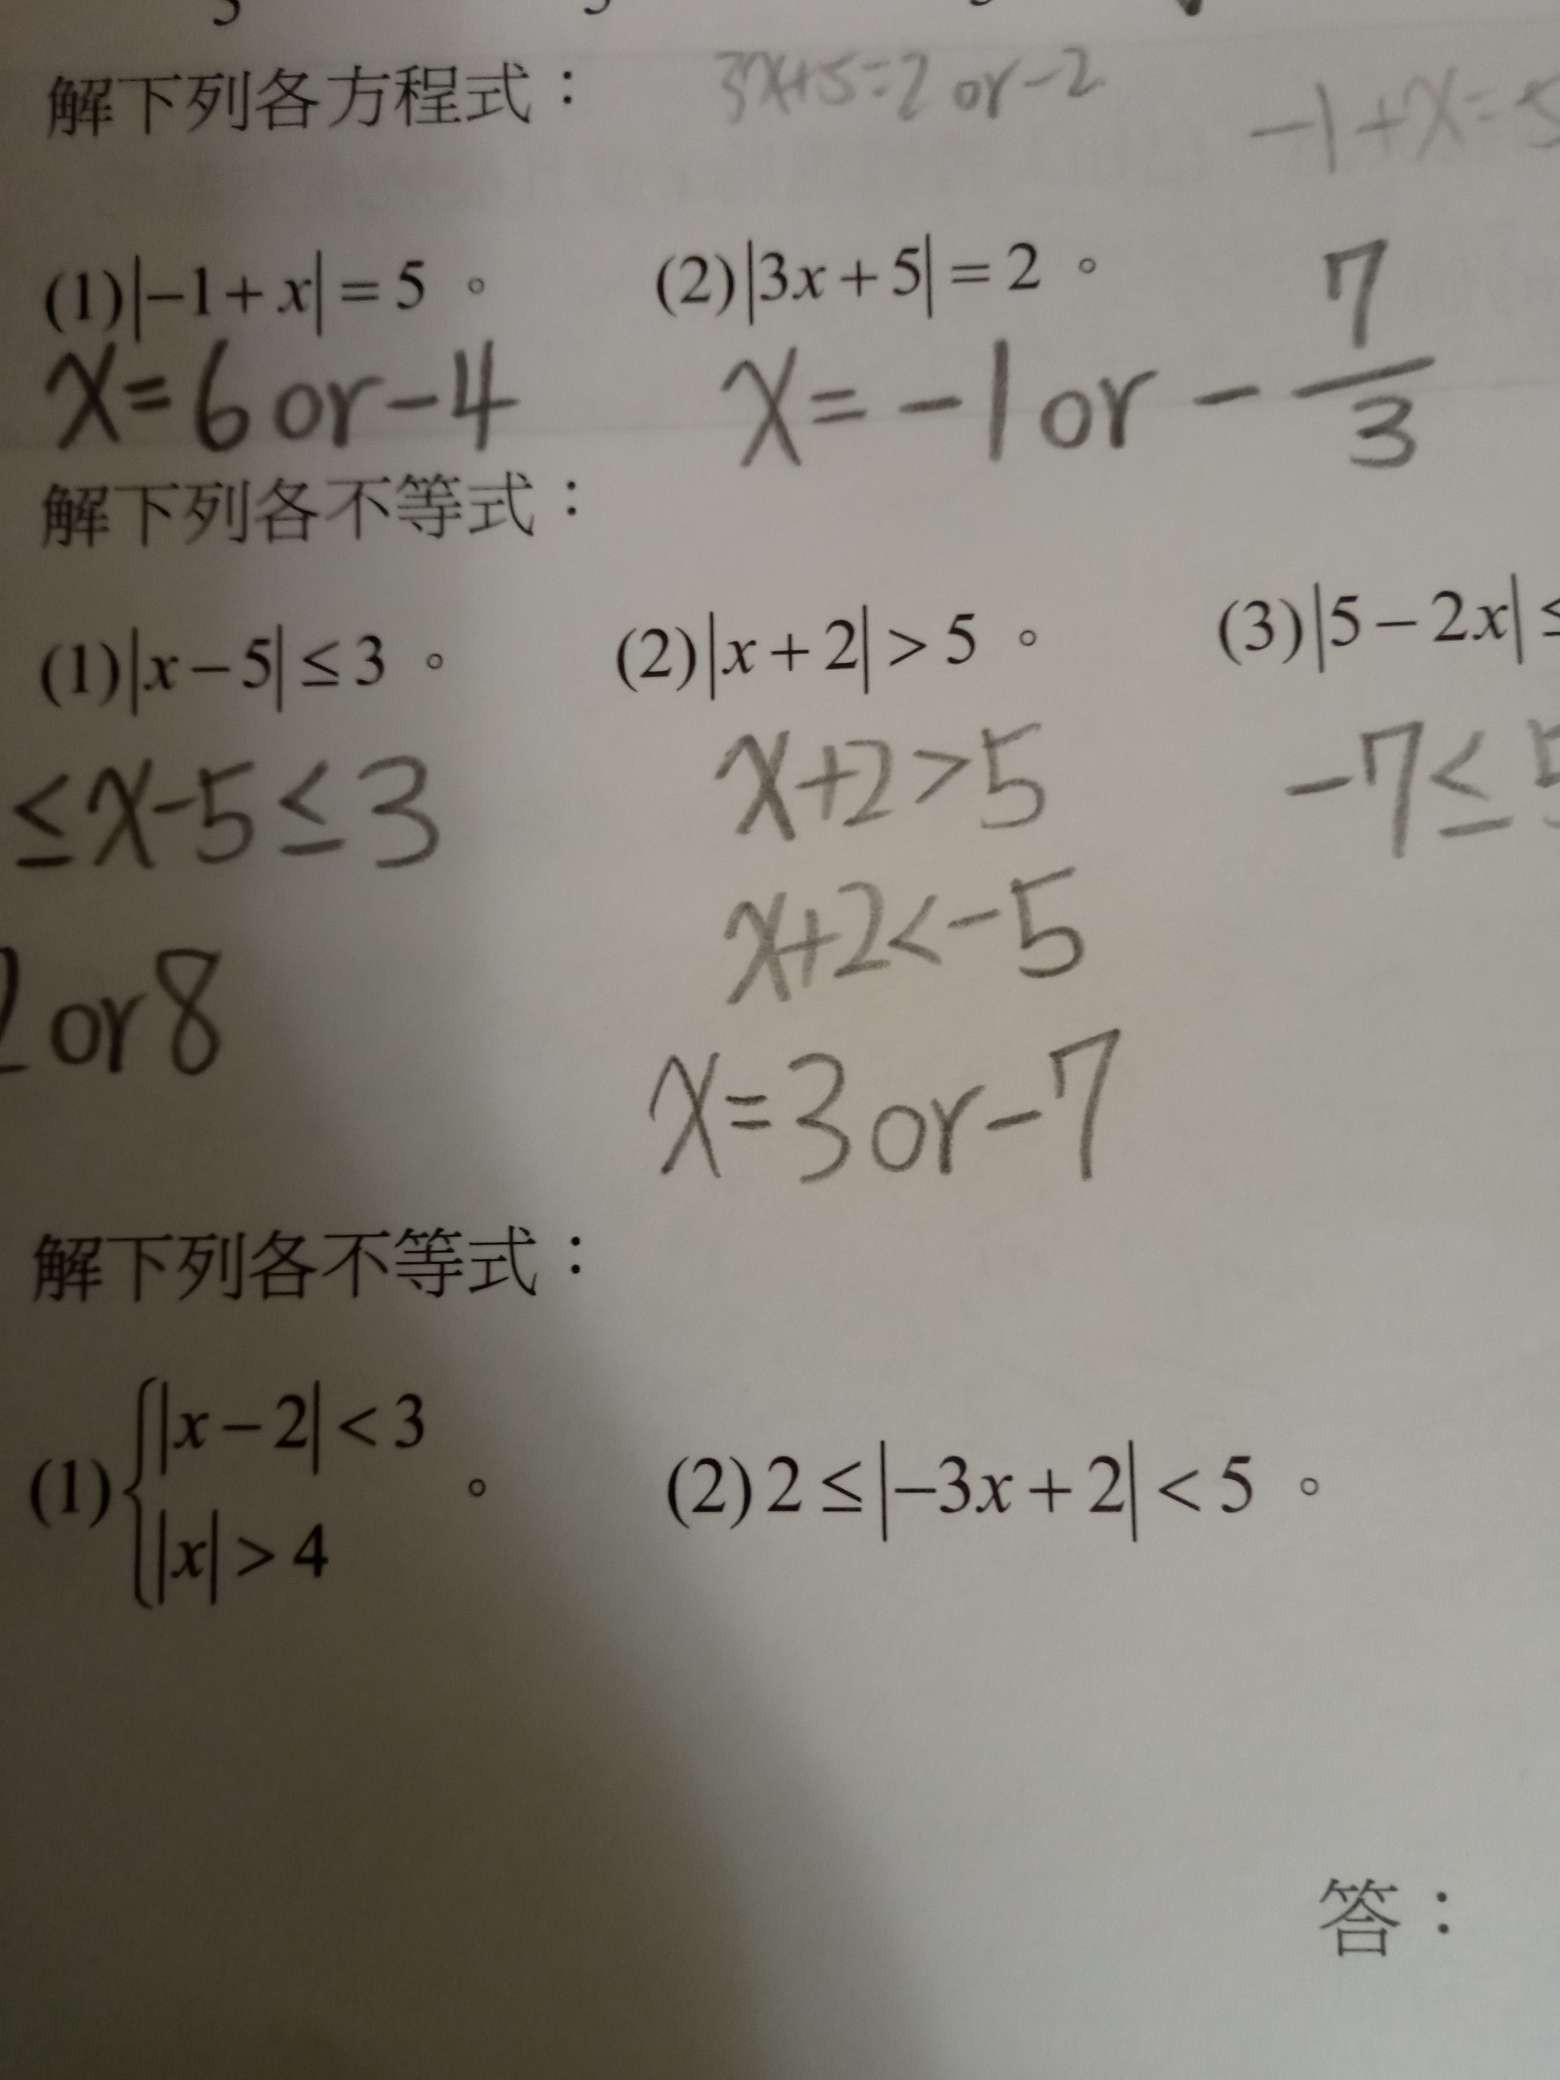 解下列各方程式：
3x+5=2 or -2
-1+x=5
(1)|-1+x|=5。 (2)|3x+5|=2。
x=6 or -4 x=-1 or -7/3
解下列各不等式：
(1)|x-5|≤3。 (2)|x+2|>5。 (3)|5-2x|≤
≤x-5≤3 x+2>5 -7≤5
x+2<-5
2 or 8
x=3 or -7
解下列各不等式：
(1){|x-2|<3
|x|>4。
(2)2≤|-3x+2|<5。
答：